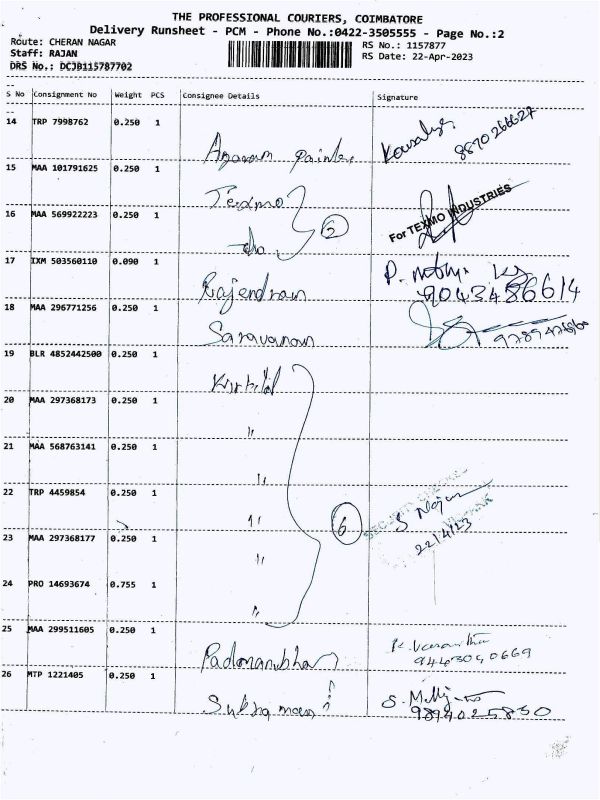 THE PROFESSIONAL COURIERS, COIMBATORE
Delivery Runsheet - PCM - Phone No.:0422-3505555 - Page No.:2
Route: CHERAN NAGAR
RS No.: 1157877
Staff: RAJAN
RS Date: 22-Apr-2023
DRS No.: DCJB115787702
S No Consignment No Weight PCS Consignee Details Signature
14 TRP 7998762 0.250 1
15 MAA 101791625 0.250 1
Texmo
For TEXMO INDUSTRIES
16 MAA 569922223 0.250 1
17 IXM 503560110 0.090 1
Rajendran
9043486614
18 MAA 296771256 0.250 1
Saravanan
19 BLR 4852442500 0.250 1
20 MAA 297368173 0.250 1
"
21 MAA 568763141 0.250 1
"
22 TRP 4459854 0.250 1
"
6
22/4/23
23 MAA 297368177 0.250 1
"
24 PRO 14693674 0.755 1
"
25 MAA 299511605 0.250 1
9443040669
26 MTP 1221405 0.250 1
9894025850